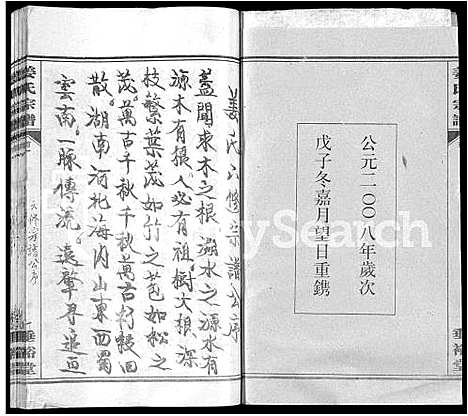 姜氏宗譜
公元二〇〇八年歲次
戊子冬嘉月望日重鐫
垂裕堂
姜氏六修宗譜公序
蓋聞求木之根溯水之源水有
源木有根人必有祖樹大根深
枝繁葉茂如竹之苞如松之
茂萬古千秋萬古籽
散湖南河北海内山東西蜀
雲南一脉傳流遠肇尋追
姜氏宗譜
六修宗譜公序
垂裕堂
MySearch